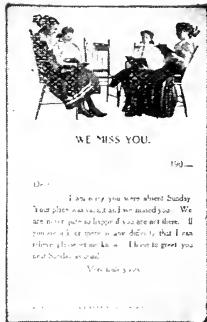 WE MISS YOU.
190
Dear
I am sorry you were absent Sunday.
Your place was vacant and we missed you. We
are never quite so happy if you are not there. If
you are sick or there is any difficulty that I can
relieve please let me know. I hope to greet you
next Sunday as usual.